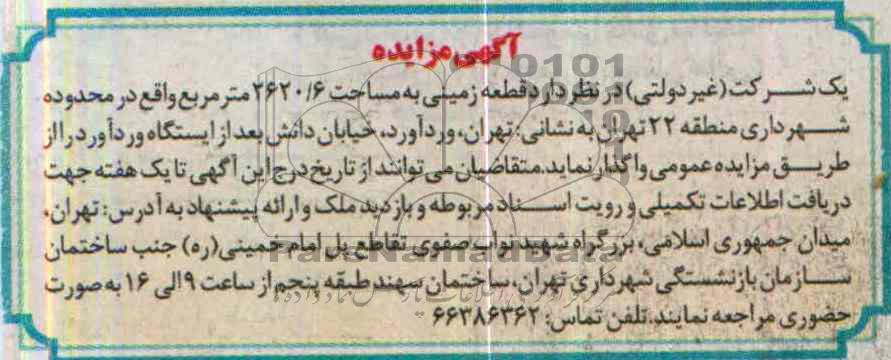 آگهی مزایده
یک شرکت (غیر دولتی) در نظر دارد قطعه زمینی به مساحت ۲۶۲۰/۶ متر مربع واقع در محدوده
شهرداری منطقه ۲۲ تهران به نشانی: تهران، وردآورد، خیابان دانش بعد از ایستگاه وردآورد را از
طریق مزایده عمومی واگذار نماید. متقاضیان می توانند از تاریخ درج این آگهی تا یک هفته جهت
دریافت اطلاعات تکمیلی و رویت اسناد مربوطه و بازدید ملک و ارائه پیشنهاد به آدرس: تهران،
میدان جمهوری اسلامی، بزرگراه شهید نواب صفوی تقاطع پل امام خمینی (ره) جنب ساختمان
سازمان بازنشستگی شهرداری تهران، ساختمان سهند طبقه پنجم از ساعت ۹ الی ۱۶ به صورت
حضوری مراجعه نمایند. تلفن تماس: ۶۶۳۸۶۳۶۲